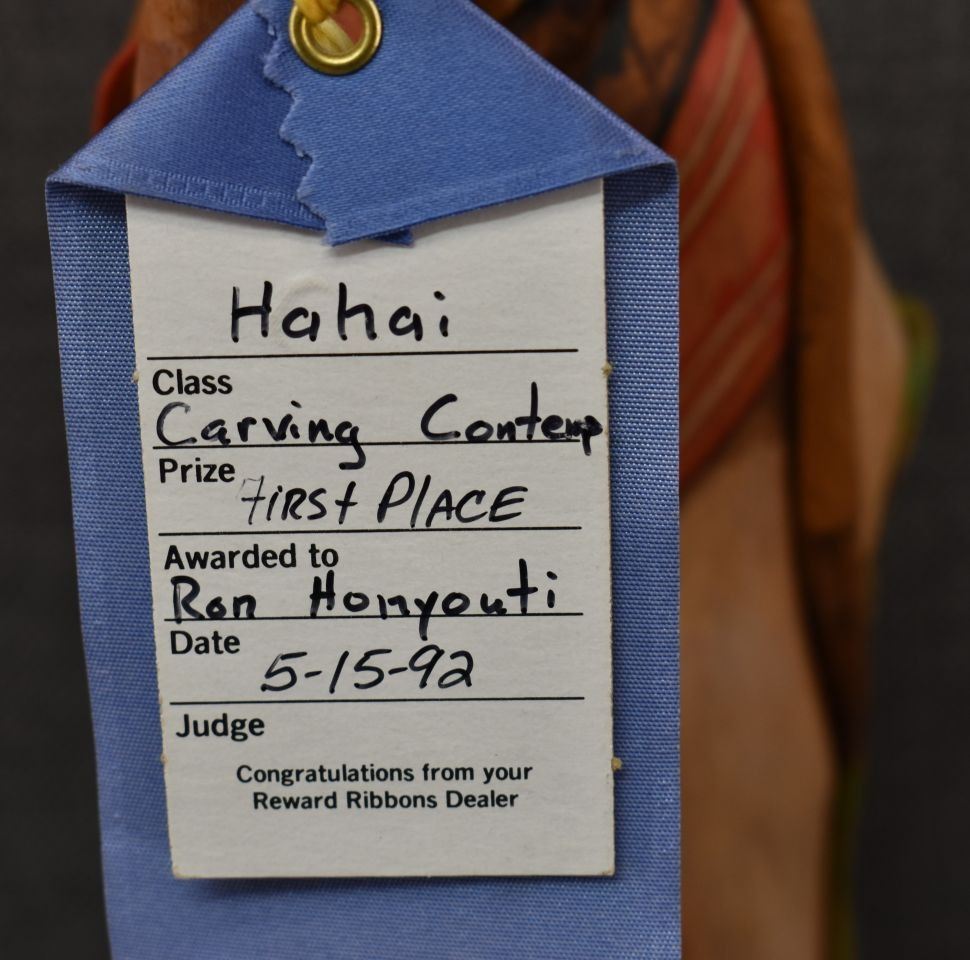 Hahai
Class
Carving Contemp
Prize
FIRST PLACE
Awarded to
Ron Honyouti
Date
5-15-92
Judge
Congratulations from your
Reward Ribbons Dealer